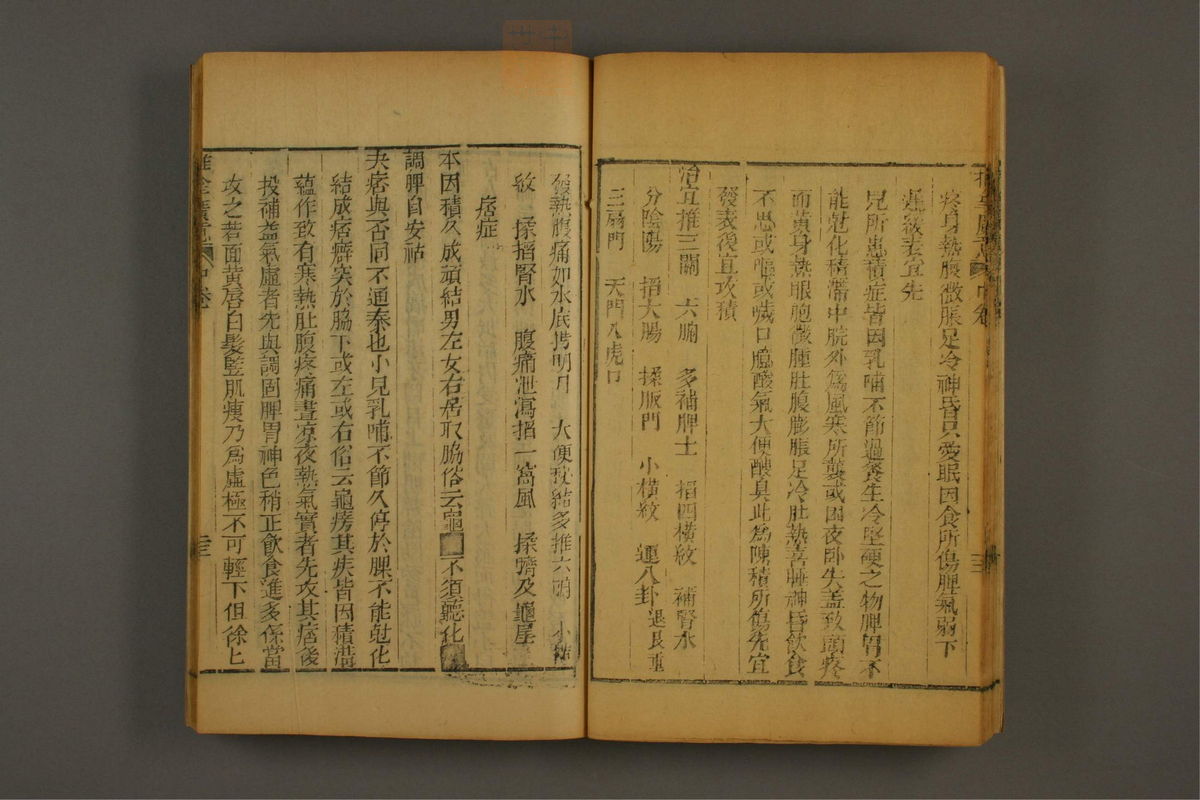 疼身熱腹微脹足冷神昏只愛眠因食所傷脾氣弱下
遲發表宜先
兒所患積症皆因乳哺不節過飡生冷堅硬之物脾胃不
能尅化積滯中脘外爲風寒所襲或因夜卧失盖致頭疼
而黄身熱眼胞微腫肚腹膨脹足冷肚熱喜睡神昏飲食
不思或嘔或噦口噫酸氣大便醙臭此爲陳積所傷先宜
發表後宜攻積
治宜推三關 六腑 多補脾土 掐四横紋 補腎水
分陰陽 掐大腸 揉版門 小横紋 運八卦退艮重
三扇門 天門入虎口
發熱腹痛如水底撈明月 大便秘結多推六腑 小横
紋 揉掐腎水 腹痛泄瀉掐一窩風 揉臍及龜尾
痞症
本因積久成頑結男左女右居取脇俗云龜 不須聽化
調脾自安祜
夫痞與否同不通泰也小兒乳哺不節久停於脾不能尅化
結成痞癖突於脇下或左或右俗云龜痨其疾皆因積滯
蘊作致有寒熱肚腹疼痛晝凉夜熱氣實者先攻其痞後
投補益氣虛者先與調固脾胃神色稍正飲食進多係當
攻之若面黄唇白髮竪肌瘦乃爲虛極不可輕下但徐匕